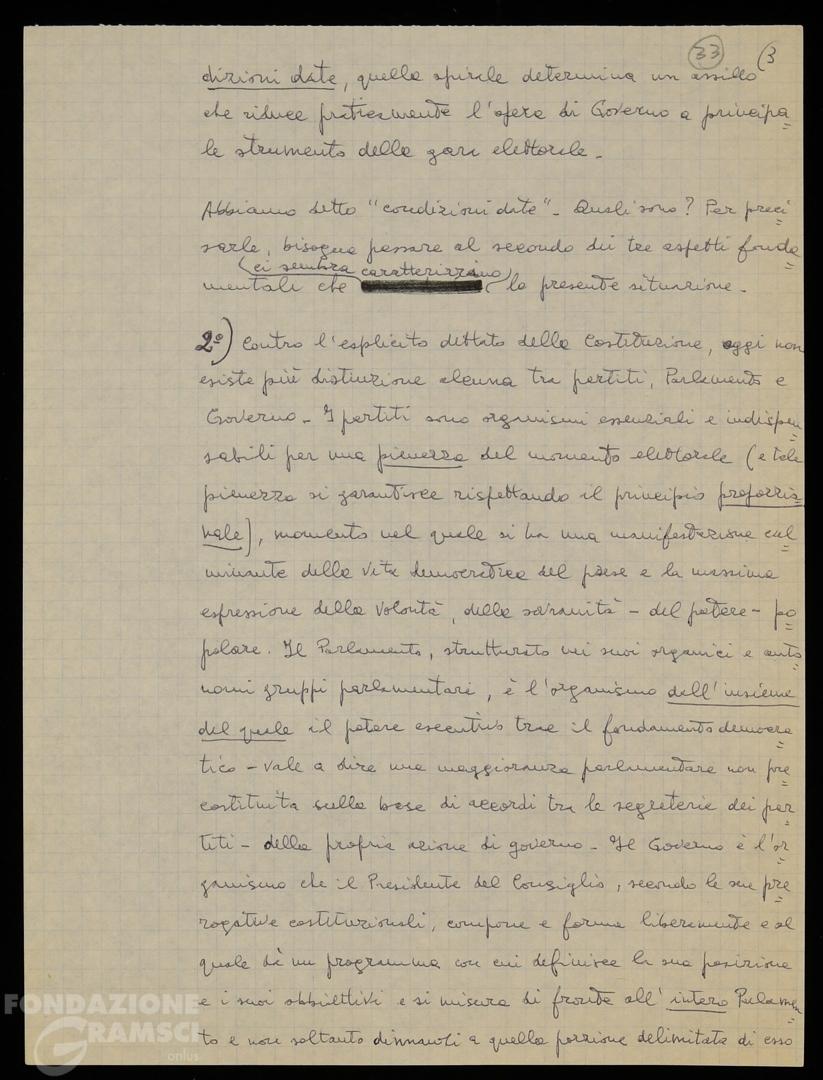 33 (3
dizioni date, quella spirale determina un assillo
che riduce praticamente l'opera di Governo a principa=
le strumento della gara elettorale.
Abbiamo detto "condizioni date". Quali sono? Per preci
sarle, bisogna passare al secondo dei tre aspetti fonda=
ci sembra caratterizzino
mentali che la presente situazione.
2º) Contro l'esplicito dettato della Costituzione, oggi non
esiste più distinzione alcuna tra partiti, Parlamento e
Governo. I partiti sono organismi essenziali e indispen=
sabili per una pienezza del momento elettorale (e tale
pienezza si garantisce rispettando il principio proporzio
nale), momento nel quale si ha una manifestazione cul=
minante della vita democratica del paese e la massima
espressione della volontà, della sovranità - del potere - po=
polare. Il Parlamento, strutturato nei suoi organici e auto=
nomi gruppi parlamentari, è l'organismo dall'insieme
del quale il potere esecutivo trae il fondamento democra=
tico - vale a dire una maggioranza parlamentare non pre=
costituita sulla base di accordi tra le segreterie dei par=
titi - della propria azione di governo. Il Governo è l'or=
ganismo che il Presidente del Consiglio, secondo le sue pre=
rogative costituzionali, compone e forma liberamente e al
quale dà un programma con cui definisce la sua posizione
e i suoi obbiettivi e si misura di fronte all'intero Parlamen=
to e non soltanto dinnanzi a quella porzione delimitata di esso
FONDAZIONE
GRAMSCI
onlus